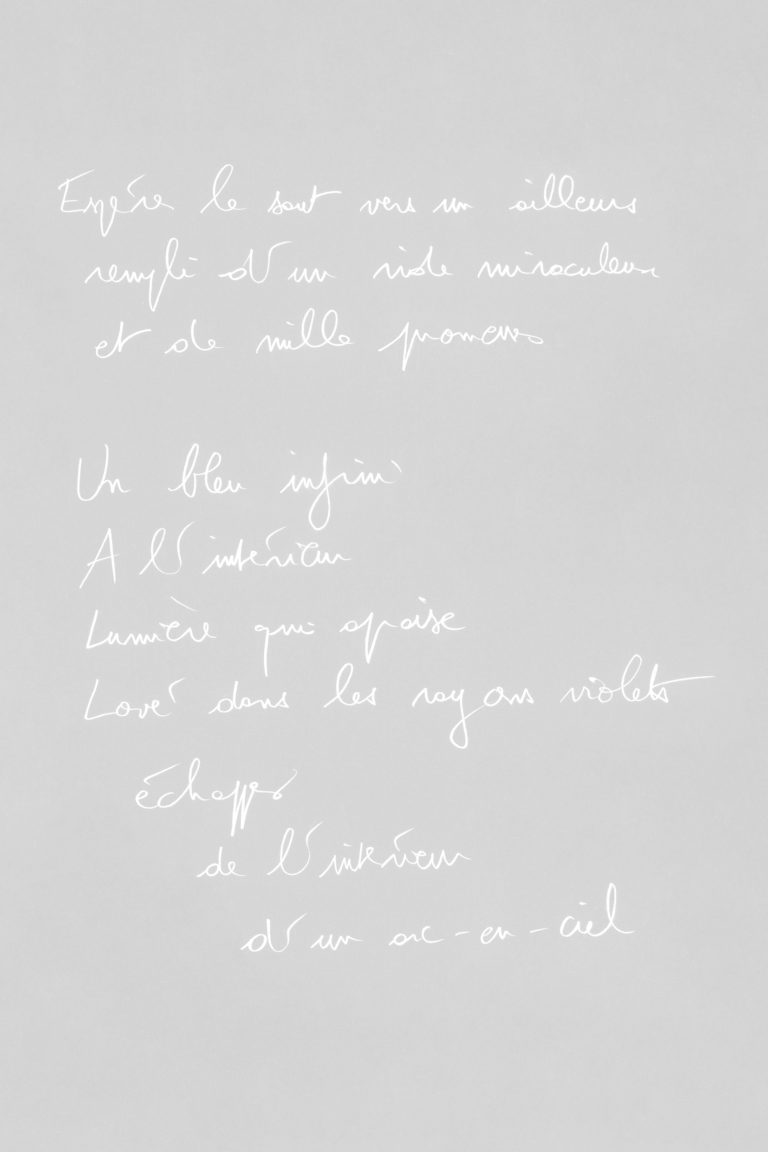 Espère le saut vers un ailleurs
rempli d'un vide miraculeux
et de mille promesses
Un bleu infini
A l'intérieur
Lumière qui apaise
Lové dans les rayons violets
échappés
de l'intérieur
d'un arc-en-ciel